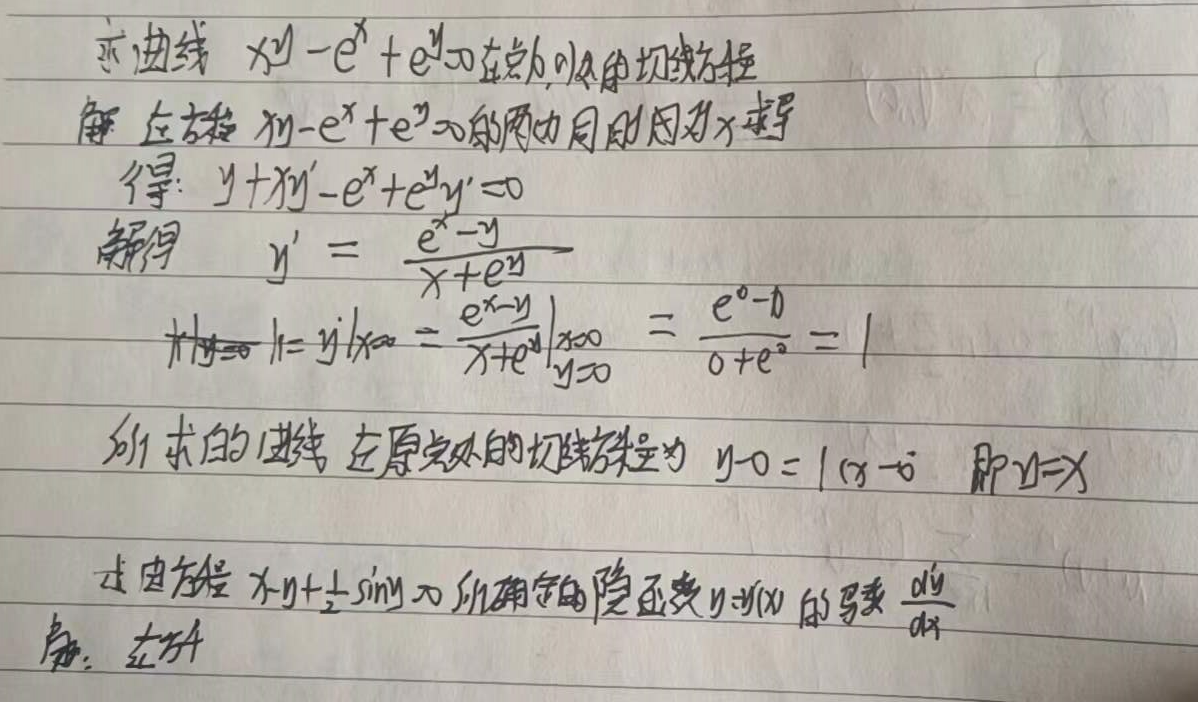 求曲线 xy - e^x + e^y = 0 在点(0,0)处的切线方程
解 在方程 xy - e^x + e^y = 0 的两边同时对 x 求导
得: y + xy' - e^x + e^y y' = 0
解得 y' = (e^x - y)/(x + e^y)
k = y'|x=0 = (e^x - y)/(x + e^y)|x=0 y=0 = (e^0 - 0)/(0 + e^0) = 1
所求的曲线在原点处的切线方程为 y-0 = 1(x-0 即 y=x
求由方程 x-y+1/2 siny=0 所确定的隐函数 y=y(x) 的导数 dy/dx
解: 在方